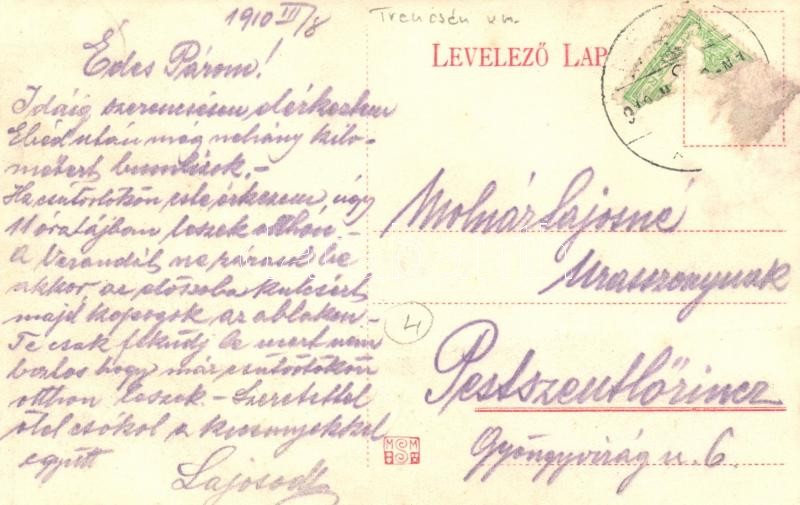 1910 III/8
Trencsén vm.
LEVELEZŐ LAP
Édes Párom!
Idáig szerencsésen elérkeztem
Ebéd után meg néhány kilo-
métert
Ha csütörtökön este érkezem, úgy
11 óra tájban leszek otthon.-
A Verandát ne zárasd be
akkor az előszoba kulcsért
majd kopogok az ablakon.-
Te csak feküdj le mert nem
hogy már csütörtökön
otthon leszek.- Szeretettel
ölel csókol a
együtt
Lajosod
Molnár Lajosné
Urasszonynak
Pestszentlőrincz
Gyöngyvirág u. 6.
4
MSM